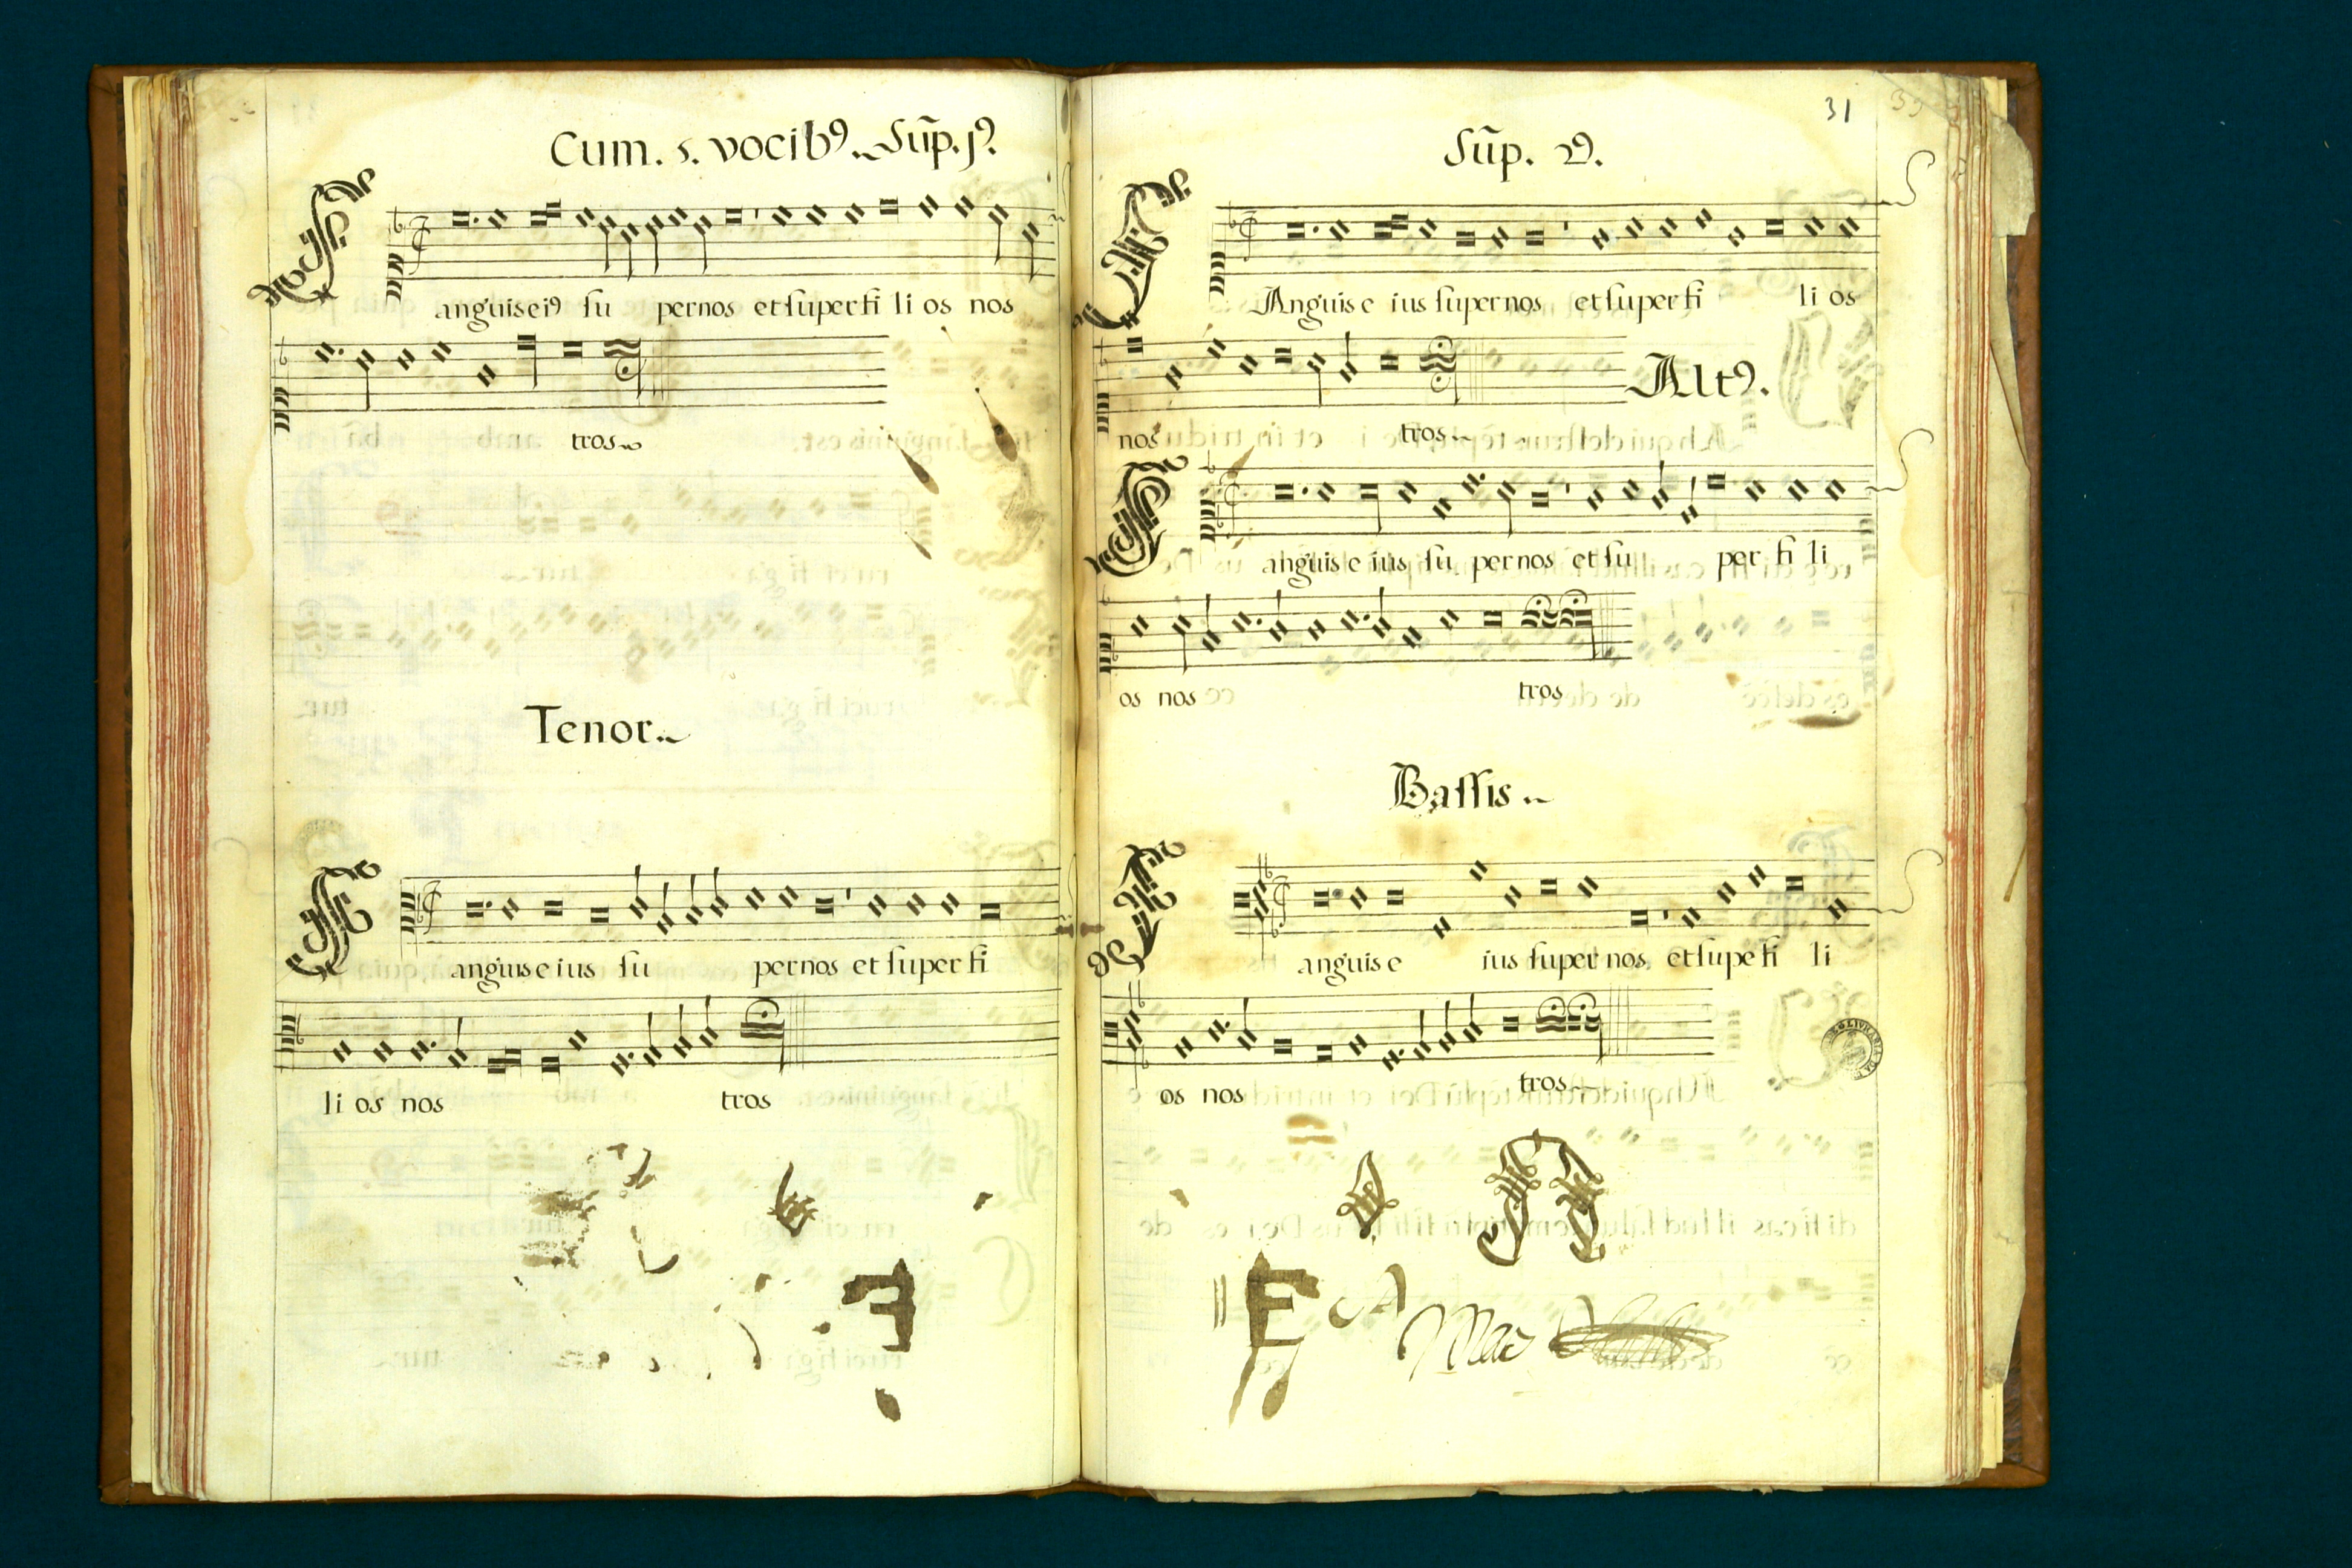 Cum. 5. vocibꝰ. Sup̃. jꝰ.
Sanguis eiꝰ su pernos et super fi li os nos
tros
Tenor.
Sanguis e ius su pernos et super fi
li os nos tros
31
Sup̃. 2ꝰ.
SAnguis e ius super nos et super fi li os
nos tros
Altꝰ.
Sanguis e ius su per nos et su per fi li
os nos tros
Bassis
Sanguis e ius super nos et supe fi li
os nos tros
E